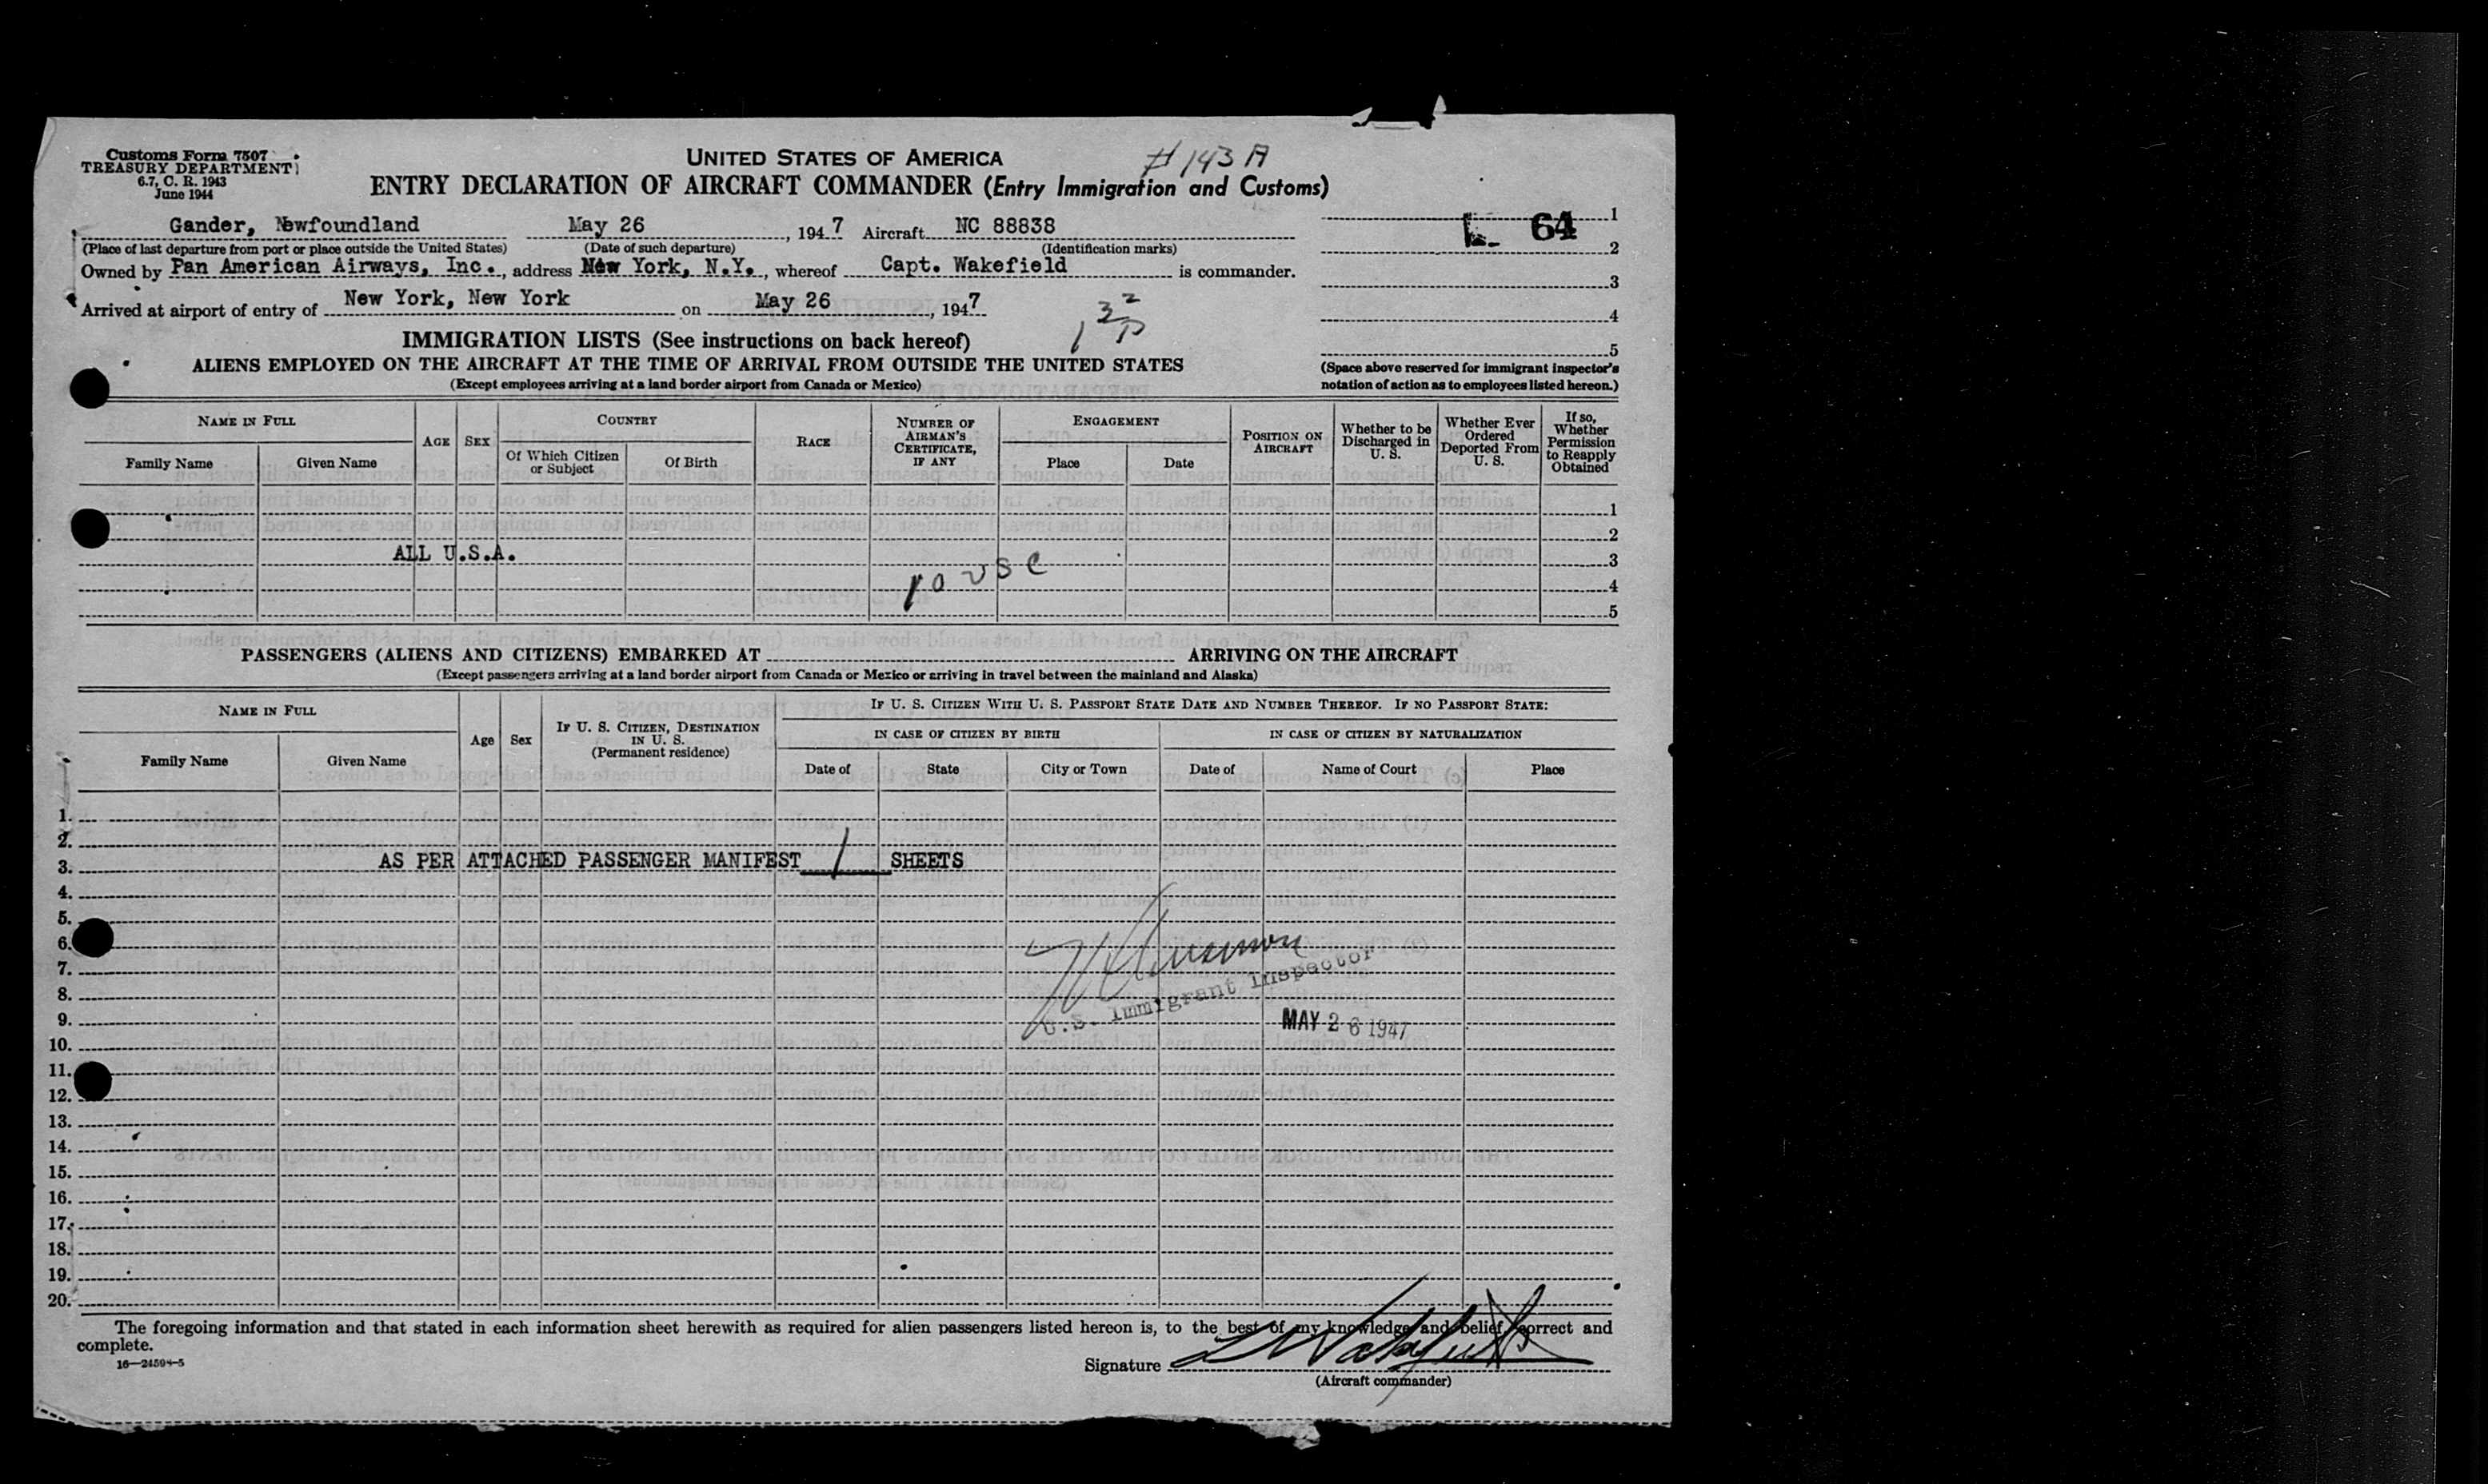 Customs Form 7507
TREASURY DEPARTMENT
6.7, C. R. 1943
June 1944
UNITED STATES OF AMERICA
# 143 A
ENTRY DECLARATION OF AIRCRAFT COMMANDER (Entry Immigration and Customs)
Gander, Newfoundland May 26, 1947 Aircraft NC 88838
(Place of last departure from port or place outside the United States) (Date of such departure) (Identification marks)
Owned by Pan American Airways, Inc., address New York, N.Y., whereof Capt. Wakefield is commander.
Arrived at airport of entry of New York, New York on May 26, 1947
1
64
2
3
4
5
(Space above reserved for immigrant inspector's
notation of action as to employees listed hereon.)
IMMIGRATION LISTS (See instructions on back hereof)
ALIENS EMPLOYED ON THE AIRCRAFT AT THE TIME OF ARRIVAL FROM OUTSIDE THE UNITED STATES
(Except employees arriving at a land border airport from Canada or Mexico)
NAME IN FULL
Family Name
Given Name
AGE
SEX
COUNTRY
Of Which Citizen
or Subject
Of Birth
RACE
NUMBER OF
AIRMAN'S
CERTIFICATE,
IF ANY
ENGAGEMENT
Place
Date
POSITION ON
AIRCRAFT
Whether to be
Discharged in
U. S.
Whether Ever
Ordered
Deported From
U. S.
If so,
Whether
Permission
to Reapply
Obtained
1
2
ALL U.S.A. 3
10 USC 4
5
PASSENGERS (ALIENS AND CITIZENS) EMBARKED AT ARRIVING ON THE AIRCRAFT
(Except passengers arriving at a land border airport from Canada or Mexico or arriving in travel between the mainland and Alaska)
NAME IN FULL
Family Name
Given Name
Age
Sex
IF U. S. CITIZEN, DESTINATION
IN U. S.
(Permanent residence)
IF U. S. CITIZEN WITH U. S. PASSPORT STATE DATE AND NUMBER THEREOF. IF NO PASSPORT STATE:
IN CASE OF CITIZEN BY BIRTH
IN CASE OF CITIZEN BY NATURALIZATION
Date of
State
City or Town
Date of
Name of Court
Place
1.
2.
3. AS PER ATTACHED PASSENGER MANIFEST 1 SHEETS
4.
5.
6.
7.
8.
U.S. Immigrant Inspector
9. MAY 26 1947
10.
11.
12.
13.
14.
15.
16.
17.
18.
19.
20.
The foregoing information and that stated in each information sheet herewith as required for alien passengers listed hereon is, to the best of my knowledge and belief, correct and
complete.
16—24594-5
Signature Wakefield
(Aircraft commander)